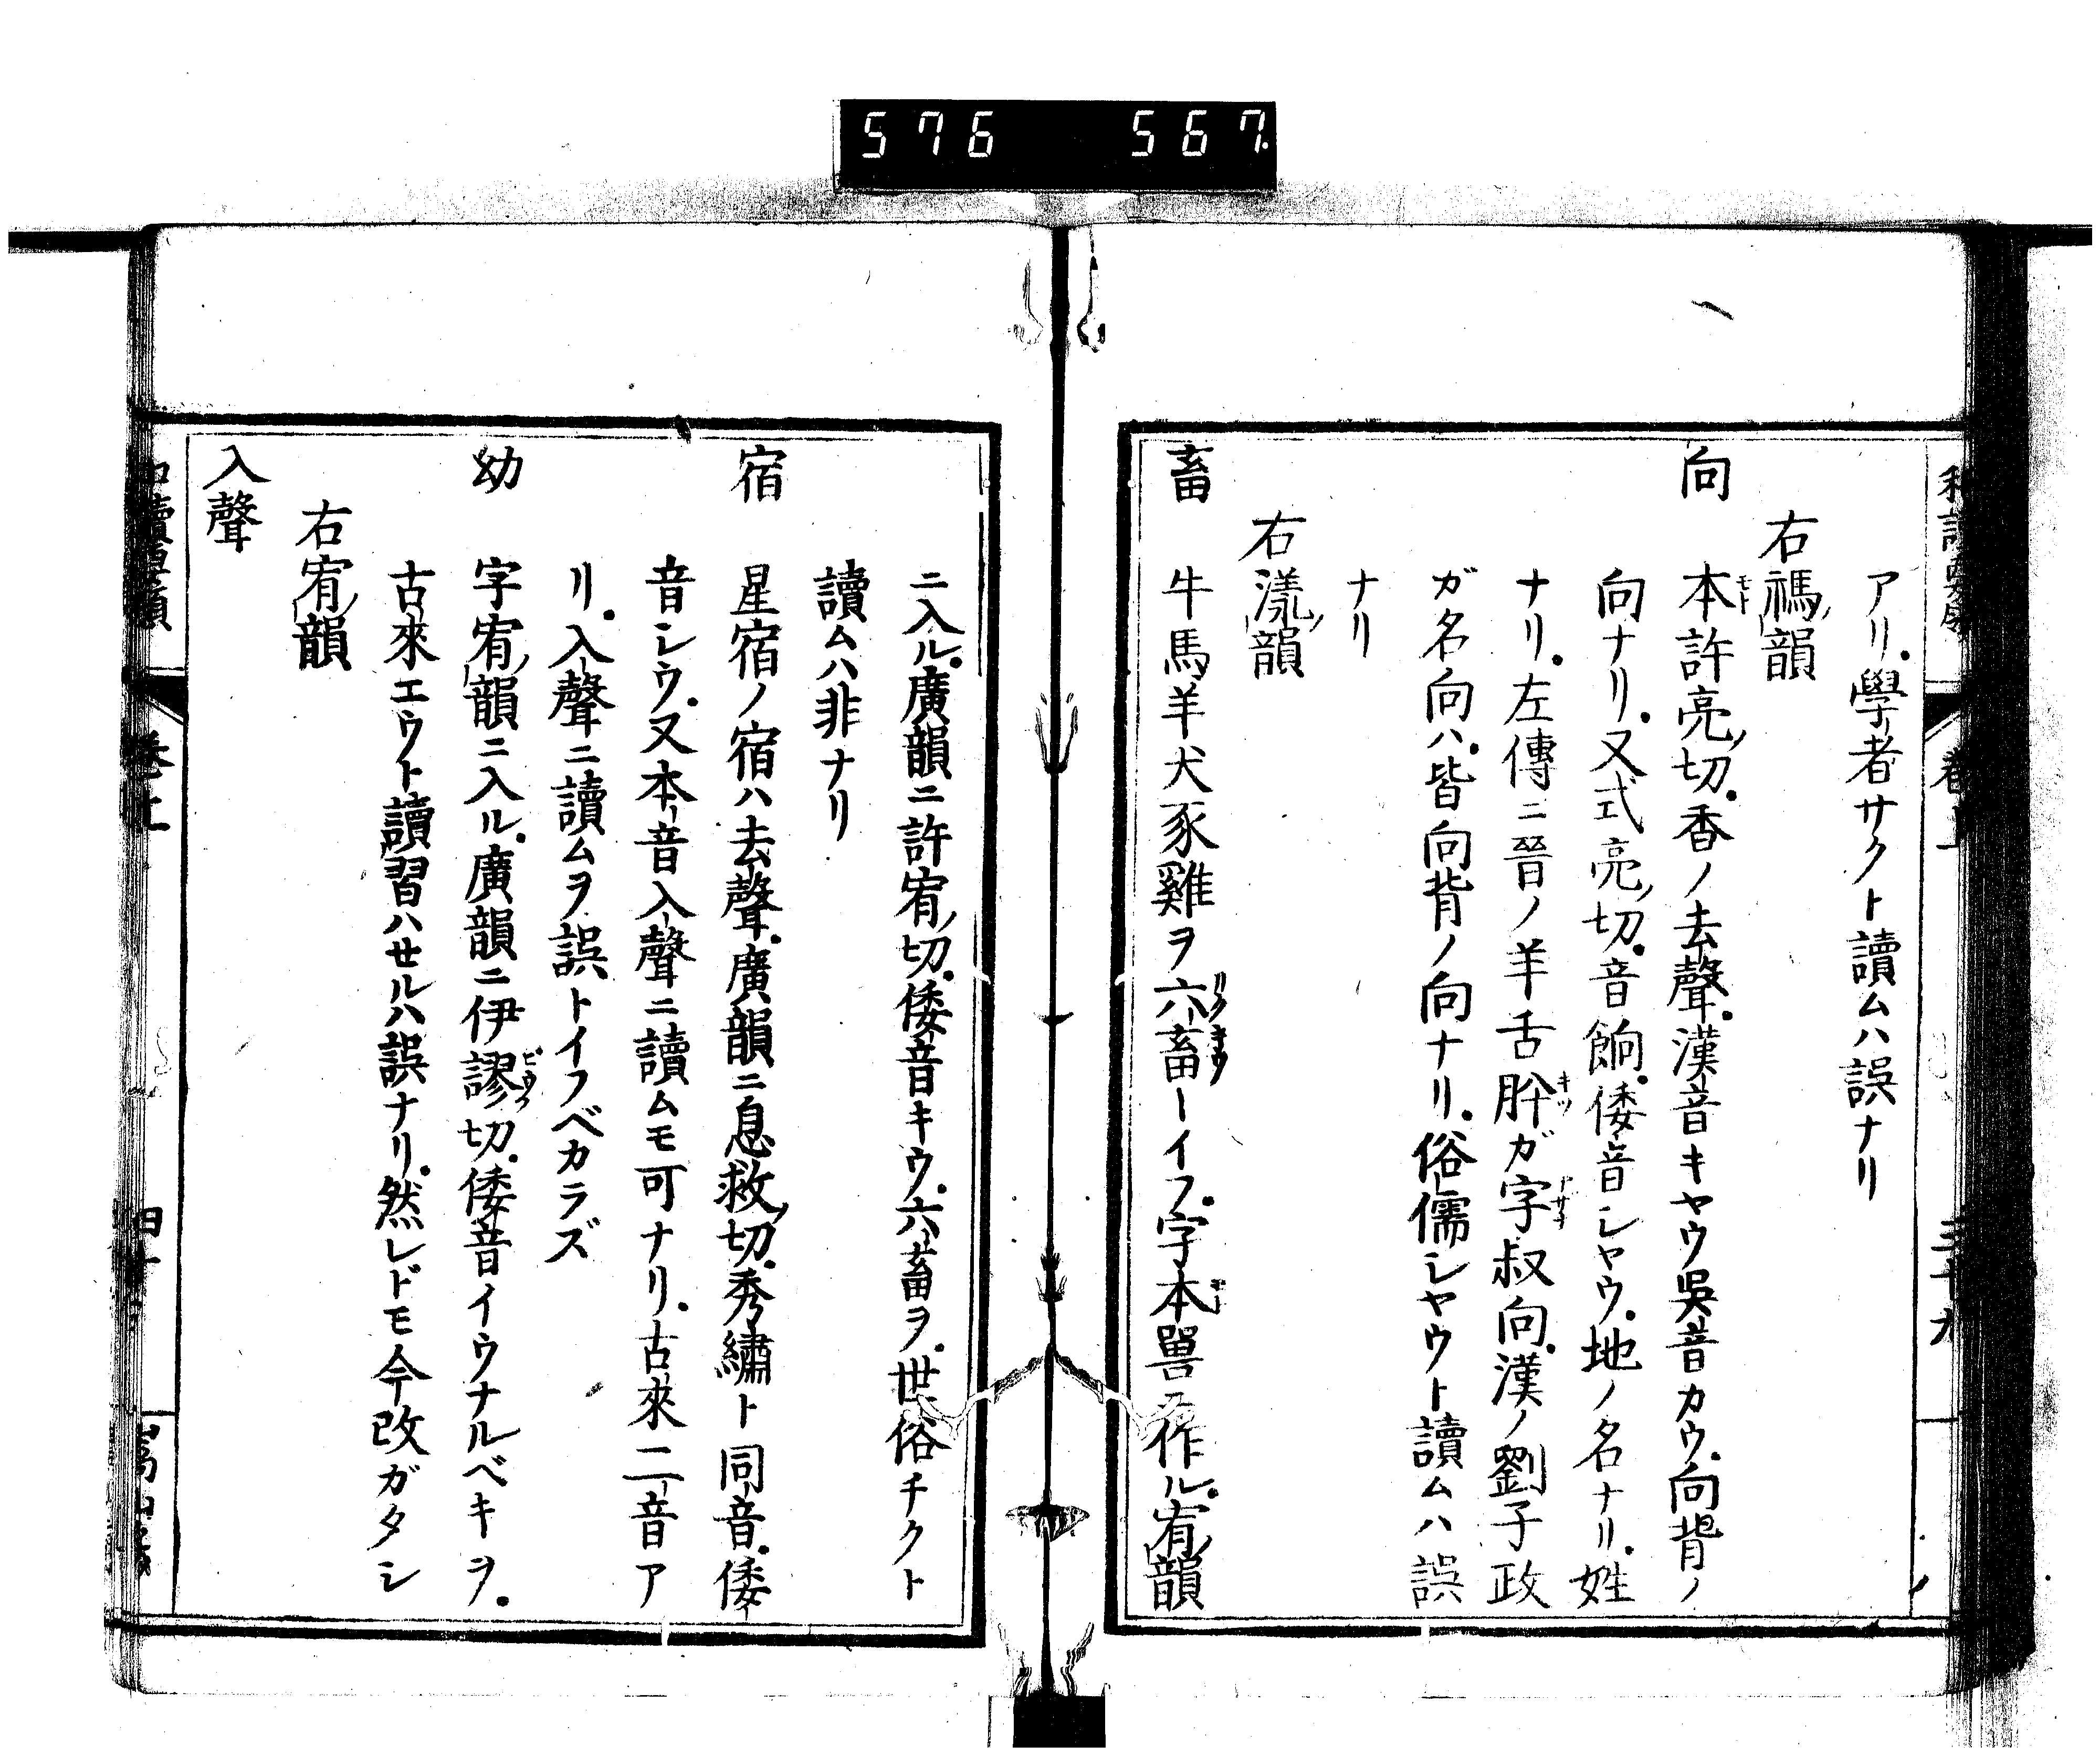 576 567
アリ。學者サクト讀ムハ誤ナリ
右禡韻
向 本許亮切。香ノ去聲。漢音キヤウ吳音カウ。向背ノ
向ナリ。又式亮切。音餉。倭音シヤウ。地ノ名ナリ。姓
ナリ。左傳ニ晉ノ羊舌肸ガ字叔向。漢ノ劉子政
ガ名向ハ。皆向背ノ向ナリ。俗儒シヤウト讀ムハ誤
ナリ
右漾韻
畜 牛馬羊犬豕雞ヲ六畜ーイフ。字本嘼作ル。宥韻
ニ入ル。廣韻ニ許宥切。倭音キウ。六畜ヲ。世俗チクト
讀ムハ非ナリ
宿 星宿ノ宿ハ去聲。廣韻ニ息救切。秀繡ト同音。倭
音シウ。又本音入聲ニ讀ムモ可ナリ。古來二音ア
リ。入聲ニ讀ムヲ誤トイフベカラズ
幼 字宥韻ニ入ル。廣韻ニ伊謬切。倭音イウナルベキヲ。
古來エウト讀習ハセルハ誤ナリ。然レドモ今改ガタシ
右宥韻
入聲